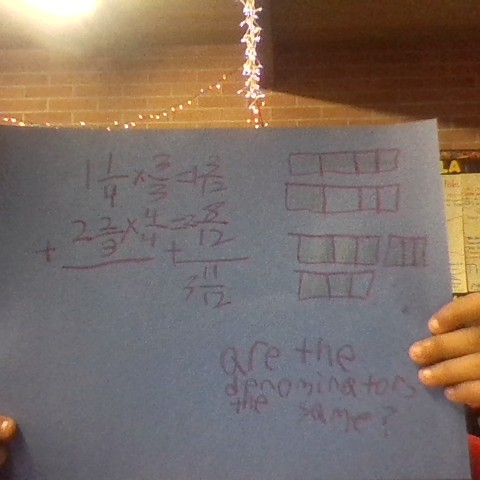 1 1/4 × 3/3 = 1 3/12
+ 2 2/3 × 4/4 = 2 8/12
+
3 11/12
are the
denominators
the same?
LA